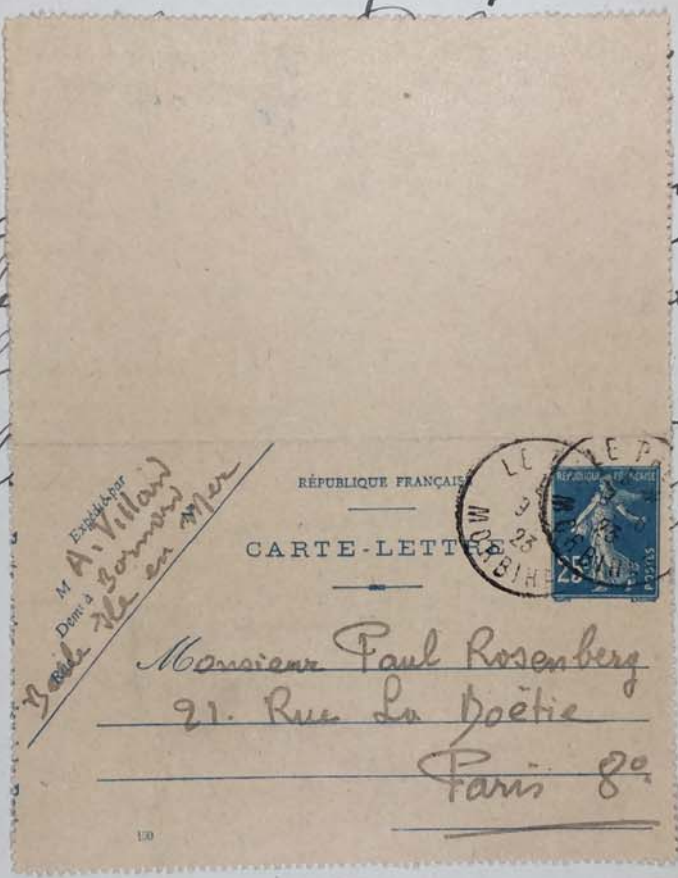 Expédié par
M A. Villard
Demt à Bormard
Rue N°
Belle Ile en Mer
RÉPUBLIQUE FRANÇAISE
CARTE-LETTRE
LE
9
23
MORBIHAN
LE P
23
MORBIHAN
RÉPUBLIQUE FRANÇAISE
25c
POSTES
Monsieur Paul Rosenberg
21. Rue La Boëtie
Paris 8e
130